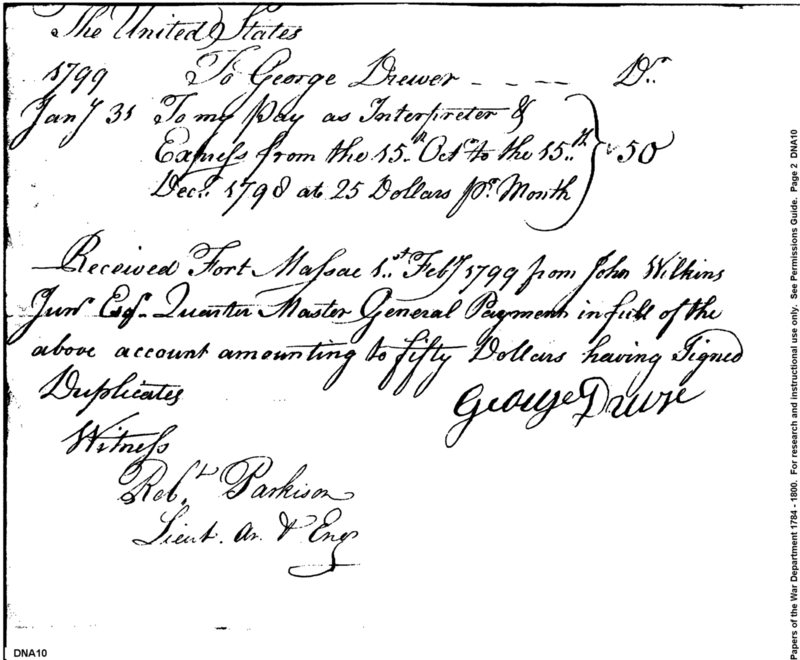 The United States
1799 To George Drewer - - - - Dr.
Jany 31 To my Pay as Interpreter &
Express from the 15th Octr to the 15th } 50
Decr. 1798 at 25 Dollars pr. Month
Received Fort Massac 1st Feby 1799 from John Wilkins
Junr Esqr. Quarter Master General Payment in full of the
above account amounting to fifty Dollars having Signed
Duplicates
George Drure
Witness
Robt. Parkison
Lieut. Ar. & Engs
DNA10
Papers of the War Department 1784 - 1800. For research and instructional use only. See Permissions Guide. Page 2 DNA10